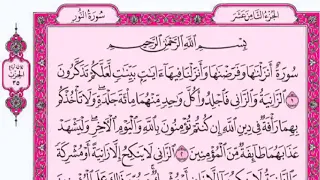 الجزء الثامن عشر
سورة النور
بِسْمِ اللَّهِ الرَّحْمَٰنِ الرَّحِيمِ
سُورَةٌ أَنزَلْنَاهَا وَفَرَضْنَاهَا وَأَنزَلْنَا فِيهَا آيَاتٍ بَيِّنَاتٍ لَّعَلَّكُمْ تَذَكَّرُونَ
١ الزَّانِيَةُ وَالزَّانِي فَاجْلِدُوا كُلَّ وَاحِدٍ مِّنْهُمَا مِائَةَ جَلْدَةٍ وَلَا تَأْخُذْكُم
بِهِمَا رَأْفَةٌ فِي دِينِ اللَّهِ إِن كُنتُمْ تُؤْمِنُونَ بِاللَّهِ وَالْيَوْمِ الْآخِرِ وَلْيَشْهَدْ
عَذَابَهُمَا طَائِفَةٌ مِّنَ الْمُؤْمِنِينَ ٢ الزَّانِي لَا يَنكِحُ إِلَّا زَانِيَةً أَوْ مُشْرِكَةً
الحزب
٣٥